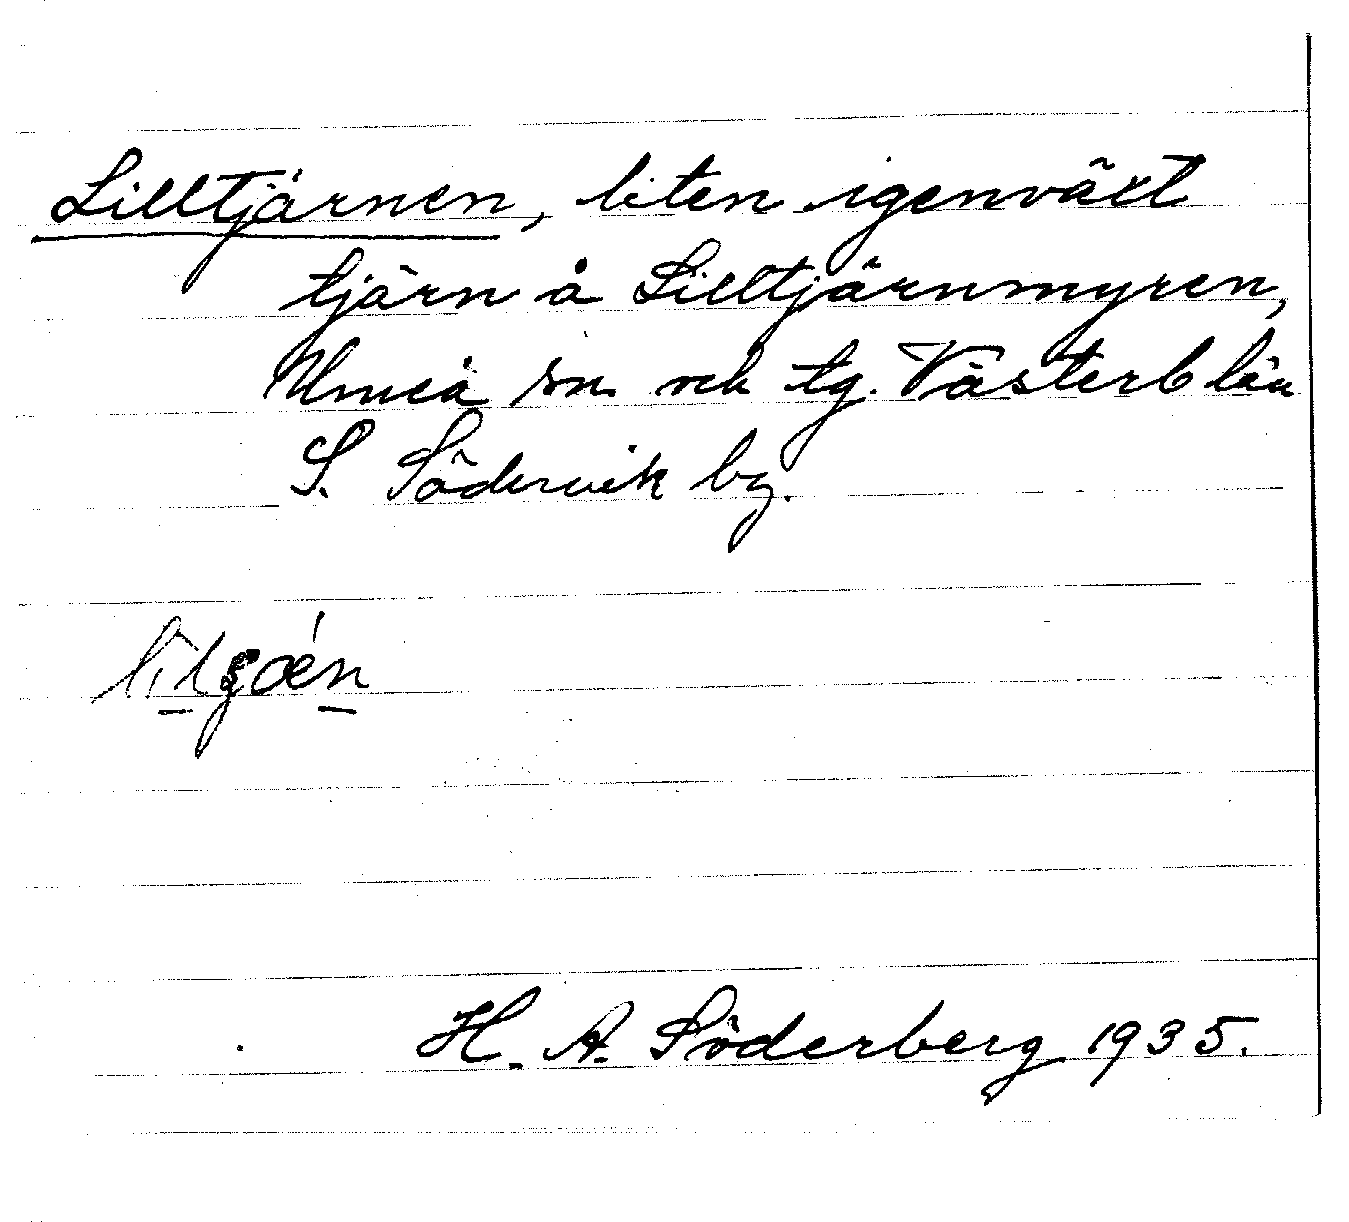 Lilltjärnen, liten igenväxt
tjärn å Lilltjärnmyren,
Umeå sn. och tg. Västerb län
S. Södervik by.
H. A. Söderberg 1935.